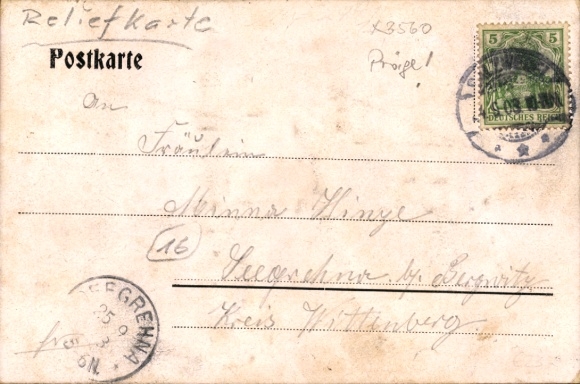 Reliefkarte
X3560
Präge!
Postkarte
5 5
DEUTSCHES REICH
An
Fräulein
Minna Hinze
16
Seegrehna b/ Bergwitz
Kreis Wittenberg
SEEGREHNA
25 9
6N.